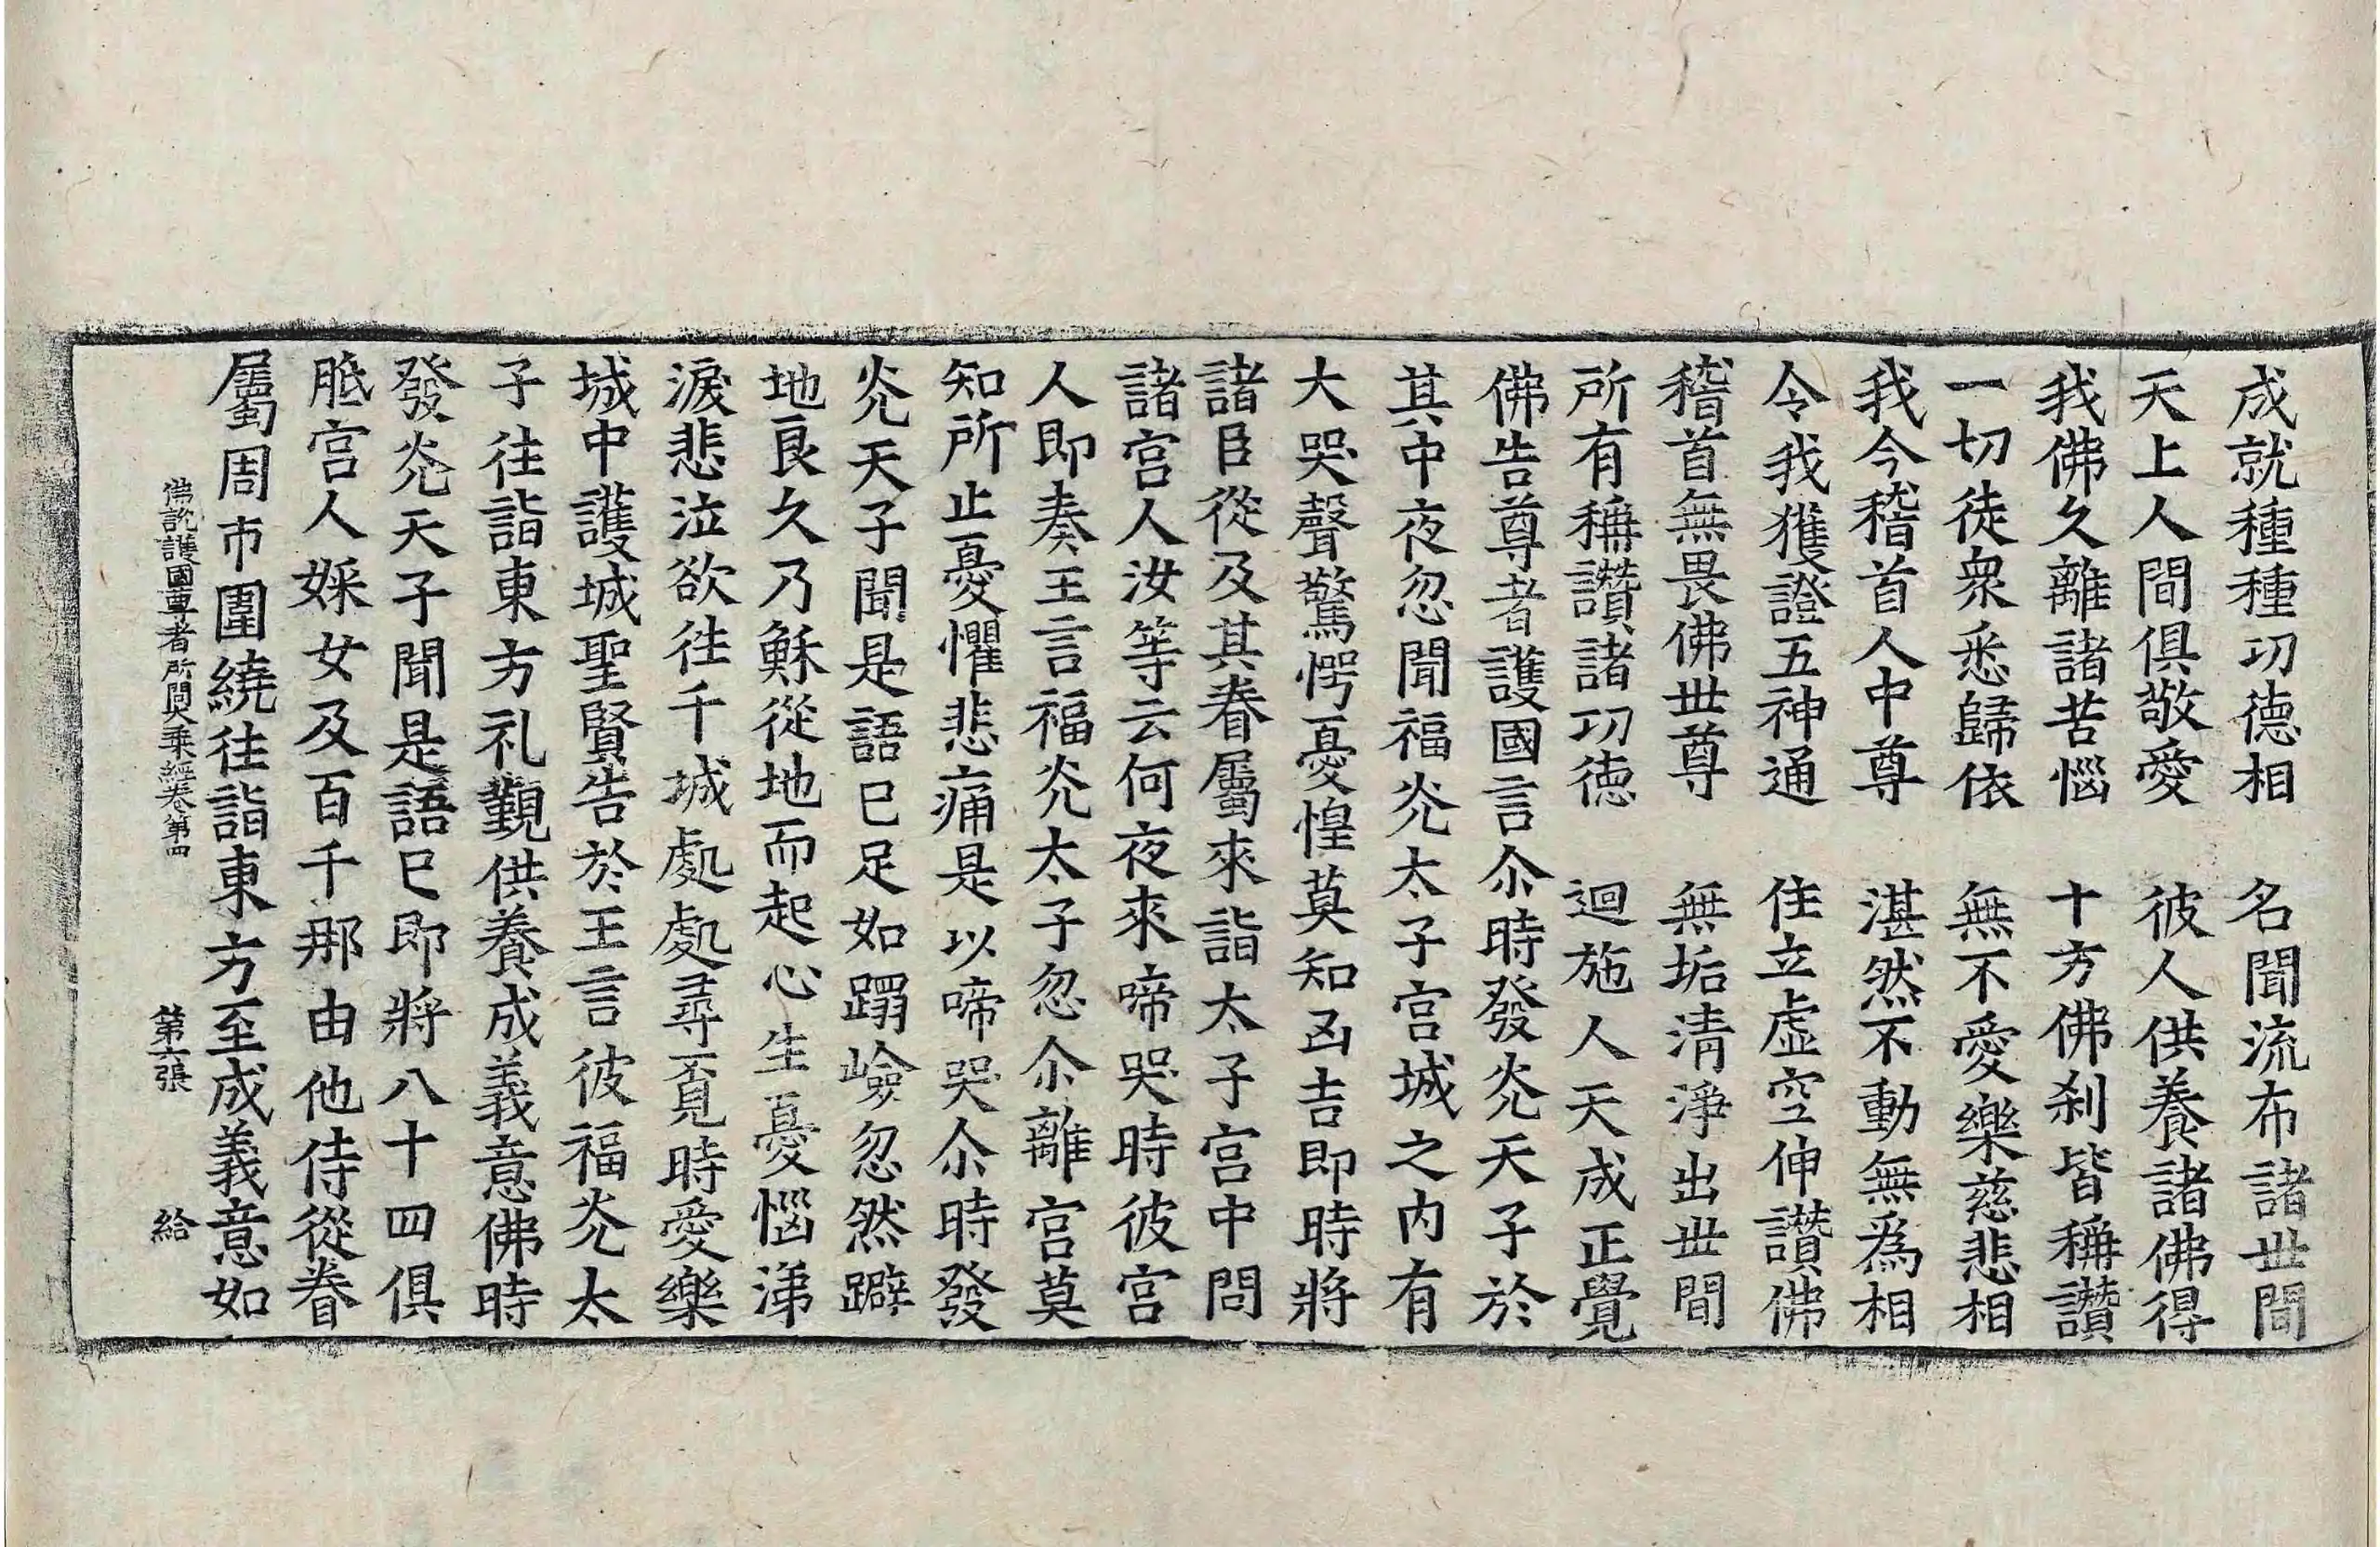 成就種種功德相　名聞流布諸丗間
天上人間俱敬愛　彼人供養諸佛得
我佛久離諸苦惱　十方佛刹皆稱讚
一切徒衆悉歸依　無不愛樂慈悲相
我今稽首人中尊　湛然不動無爲相
令我獲證五神通　住立虛空伸讚佛
稽首無畏佛丗尊　無垢清淨出丗間
所有稱讚諸功德　迴施人天成正覺
佛告尊者護國言尒時發灮天子於
其中夜忽聞福灮太子宫城之内有
大哭聲驚愕憂惶莫知凶吉即時將
諸臣從及其眷屬來詣太子宫中問
諸宫人汝等云何夜來啼哭時彼宫
人即奏王言福灮太子忽尒離宫莫
知所止憂懼悲痛是以啼哭尒時發
灮天子聞是語已足如蹋嶮忽然躃
地良久乃穌從地而起心生憂惱涕
淚悲泣欲往千城處處尋覓時愛樂
城中護城聖賢告於王言彼福灮太
子往詣東方礼覲供養成義意佛時
發灮天子聞是語已即將八十四俱
胝宫人婇女及百千那由他侍從眷
屬周帀圍繞往詣東方至成義意如
佛說護國尊者所問大乘經卷第四　第六張　給